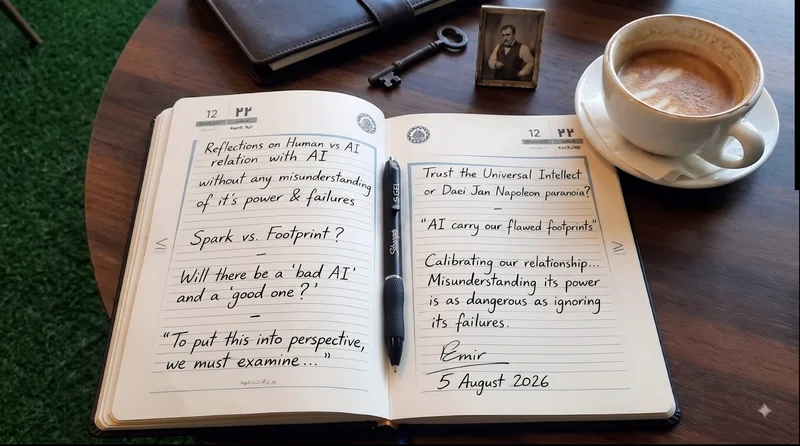 12 ۲۲
Reflections on Human vs AI
relation with AI
without any misunderstanding
of it's power & failures
Spark vs. Footprint?
–
Will there be a 'bad AI'
and a 'good one?'
–
"To put this into perspective,
we must examine..."
S GEL
Sharpie
12 ۲۲
Trust the Universal Intellect
or Daei Jan Napoleon paranoia?
–
"AI carry our flawed footprints"
Calibrating our relationship...
Misunderstanding its power
is as dangerous as ignoring
its failures.
Emir
5 August 2026